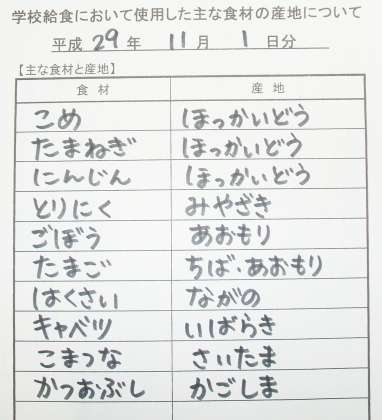 学校給食において使用した主な食材の産地について
平成 29 年 11 月 1 日分
【主な食材と産地】
食材 産地
こめ ほっかいどう
たまねぎ ほっかいどう
にんじん ほっかいどう
とりにく みやざき
ごぼう あおもり
たまご ちば・あおもり
はくさい ながの
キャベツ いばらき
こまつな さいたま
かつおぶし かごしま